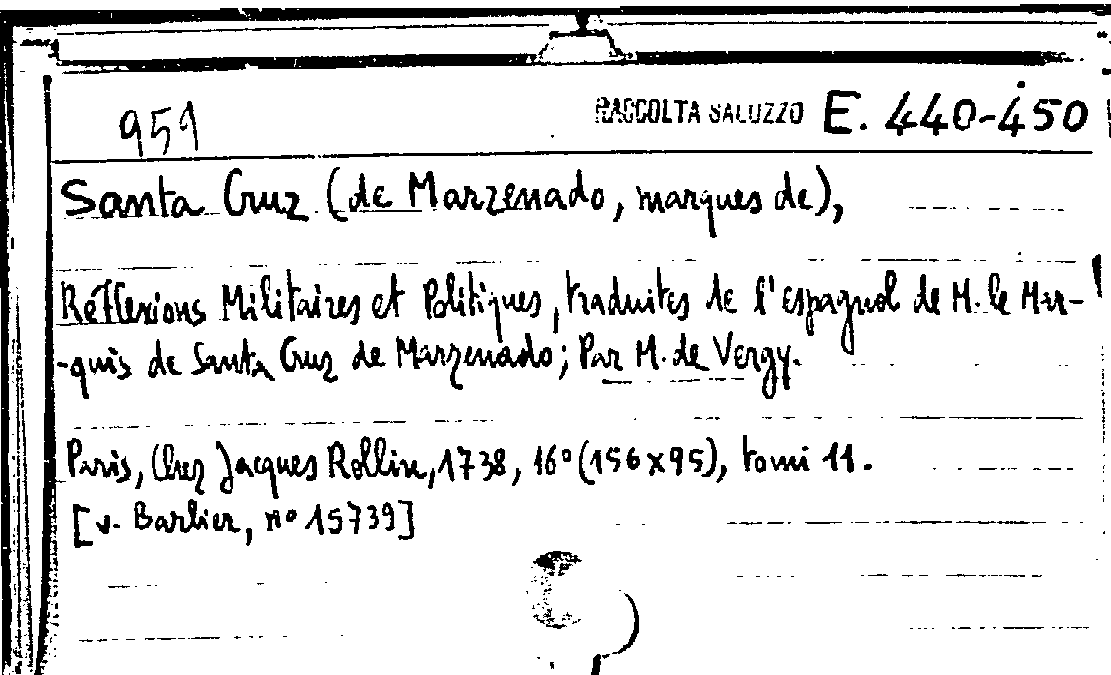 959 RACCOLTA SALUZZO E. 440-450
Santa Cruz (de Marzenado, marques de),
Réfflexions Militaires et Politiques, traduites de l'espagnol de M. le Mar-
-quis de Santa Cruz de Marzenado; Par M. de Vergy.
Paris, Chez Jacques Rollin, 1738, 16° (156x95), tomi 11.
[v. Barbier, n° 15739]